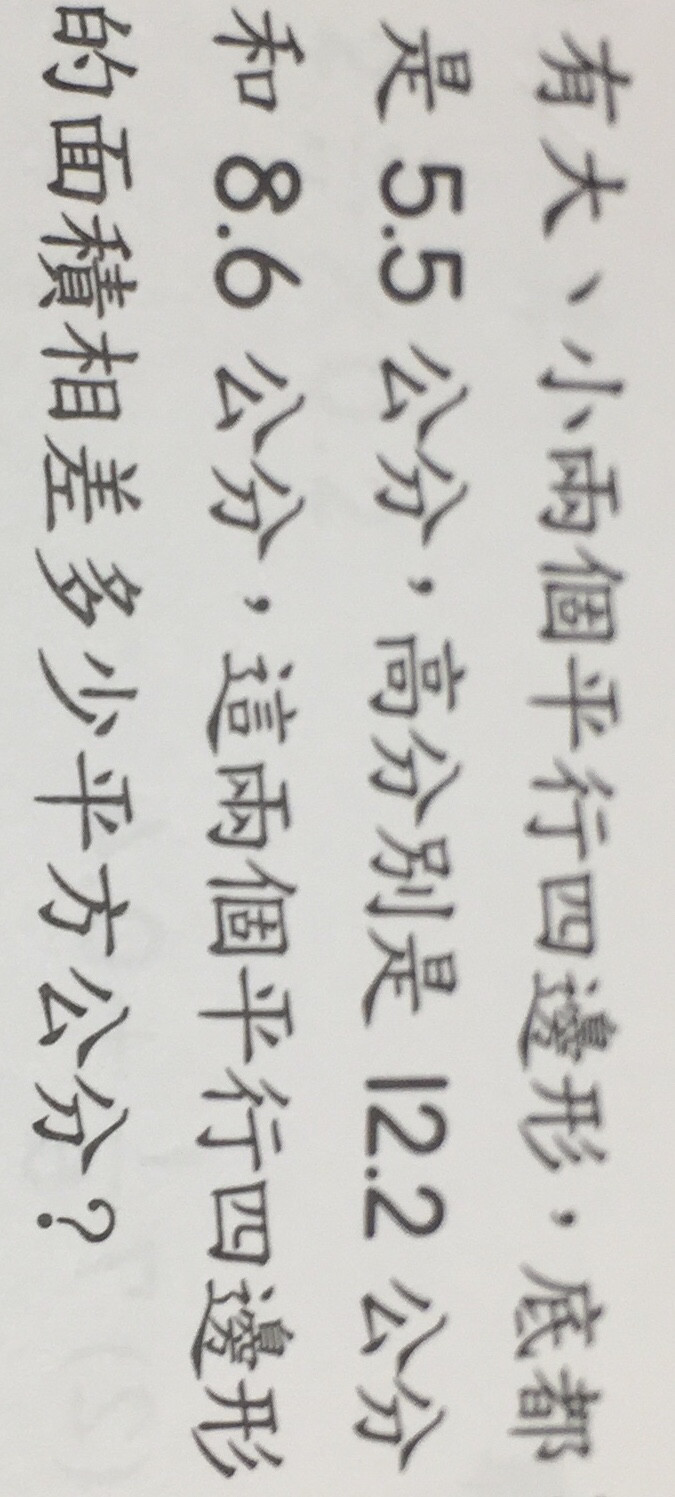 有大、小兩個平行四邊形，底都
是 5.5 公分，高分別是 12.2 公分
和 8.6 公分，這兩個平行四邊形
的面積相差多少平方公分？